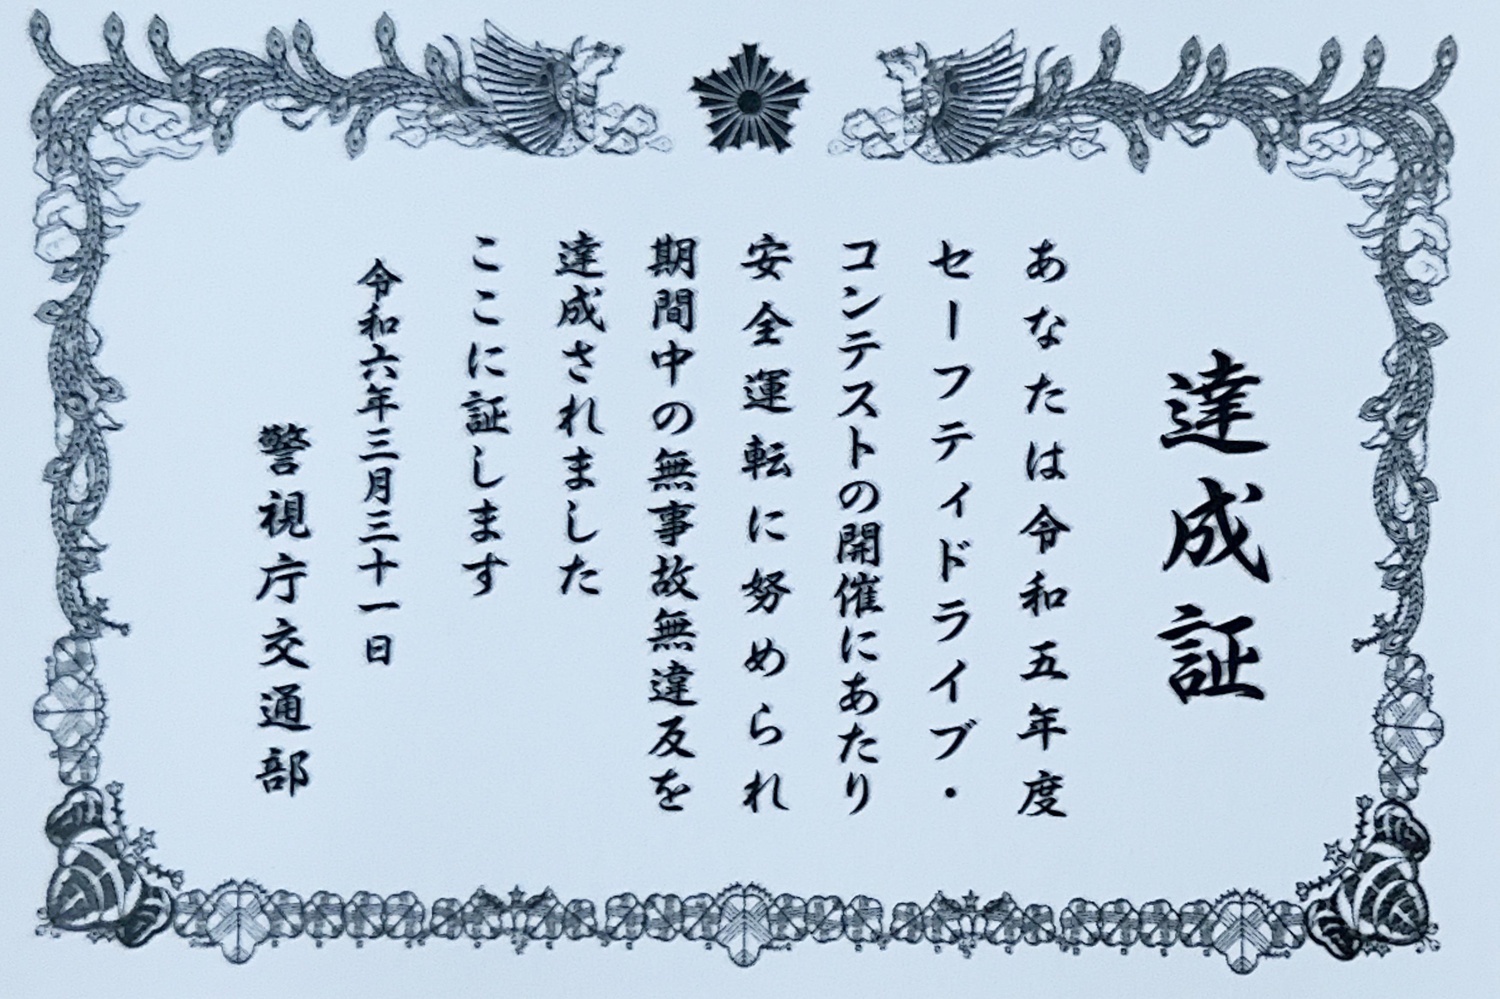 達成証
あなたは令和五年度
セーフティドライブ・
コンテストの開催にあたり
安全運転に努められ
期間中の無事故無違反を
達成されました
ここに証します
令和六年三月三十一日
警視庁交通部